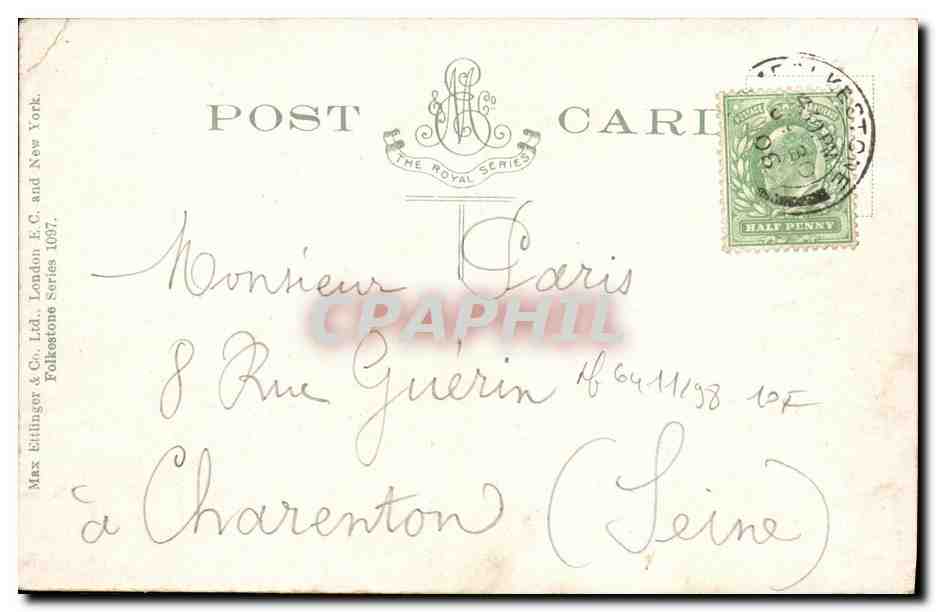 POST CARD
& Co
THE ROYAL SERIES
FOLKESTONE
HALF PENNY
Monsieur Paris
CPAPHIL
8 Rue Guérin
6411/98 10F
à Charenton (Seine)
Max Ettlinger & Co. Ltd., London E.C. and New York.
Folkestone Series 1097.